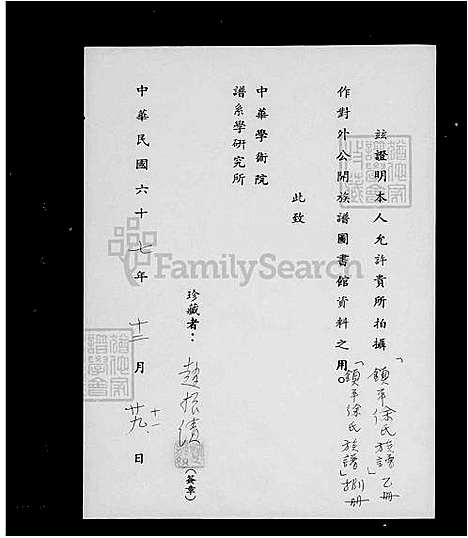 茲證明本人允許貴所拍攝「鎮平徐氏族譜」乙冊
「鎮平徐氏族譜」捌冊
作對外公開族譜圖書館資料之用。
此致
中華學術院
譜系學研究所
珍藏者：趙振績（簽章）
中華民國六十七年十二月廿九日
FamilySearch